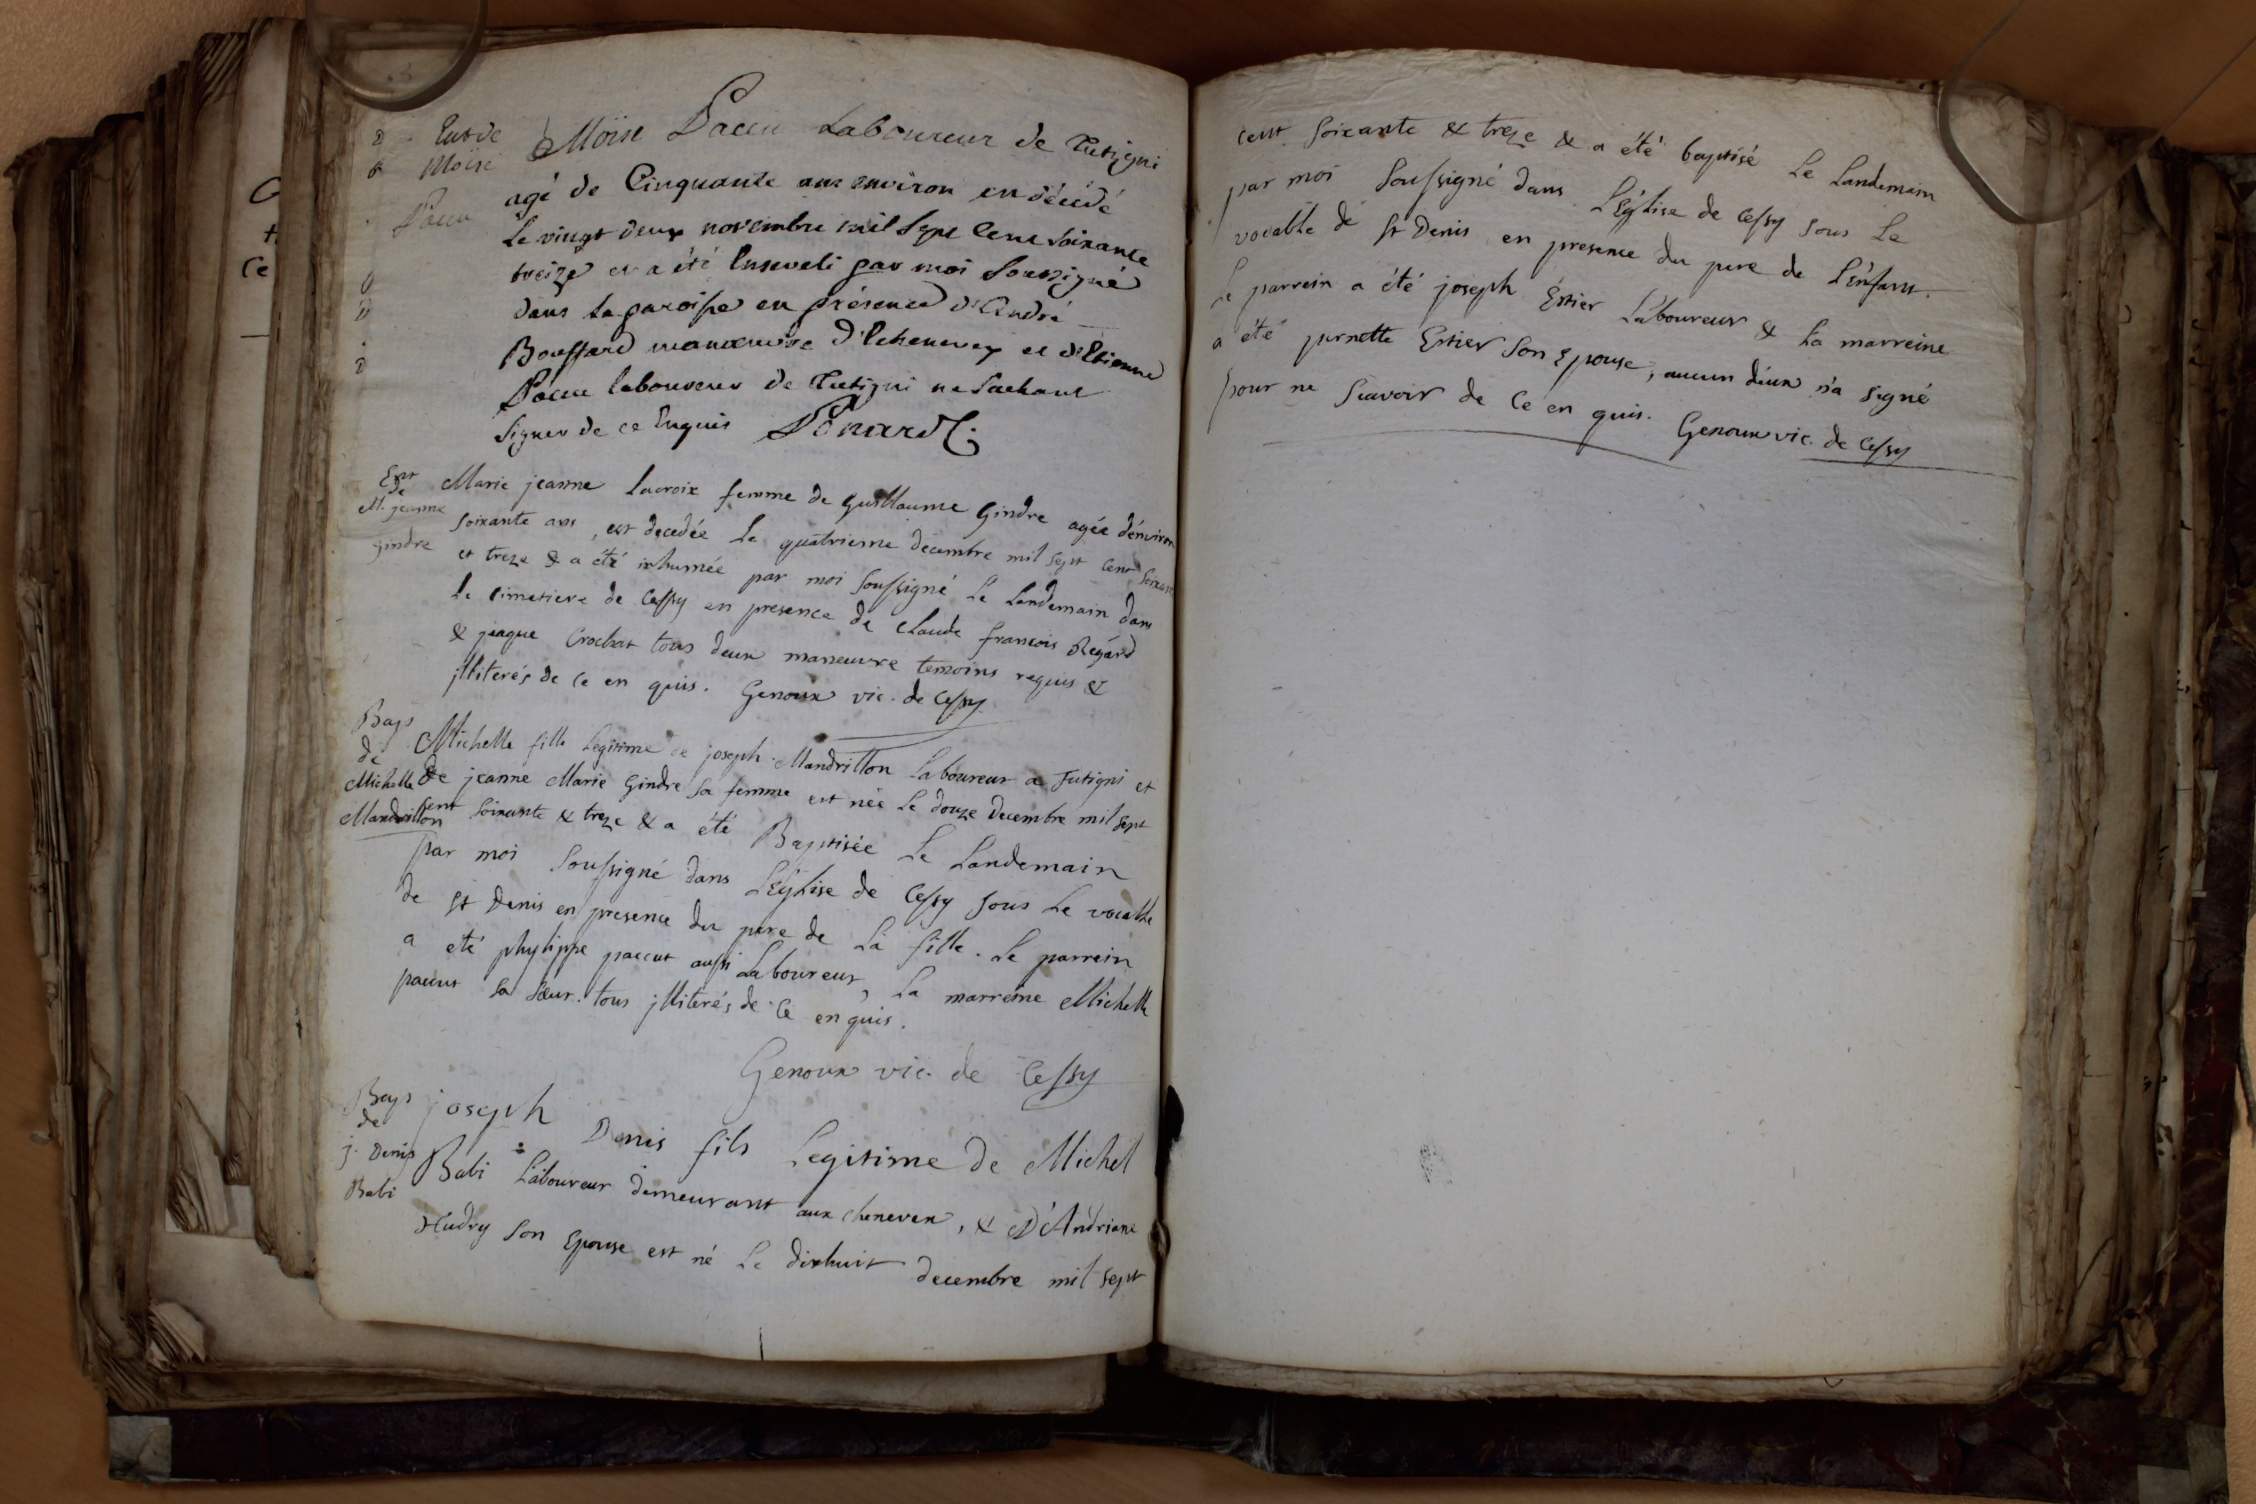 Ent de
Moise
Paccu
Moïse Paccu Laboureur de Tutigni
agé de Cinquante ans environ est décédé
le vingt deux novembre mil Sept Cent Soixante
treize et a été Enseveli par moi Soussigné
dans la paroisse en présence d'André
Bouffard manœuvre d'Echenevex et d'Etienne
Paccu laboureur de Tutigni ne Sachant
Signer de ce Enquis
Ent
de
M. jeanne
gindre
Marie jeanne Lacroix femme de Guillaume Gindre agée d'environ
soixante ans, est decedée Le quatrieme decembre mil sept Cent Soixante
et treze & a été inhumée par moi Soussigné Le Landemain dans
le cimetiere de Cessy en presence de Claude francois Regard
& jacque Crochat tous deux maneuvre temoins requis &
jlliterés de Ce en quis. Genoux vic. de Cessy
Bap
de
Michelle
Mandrillon
Michelle fille Legitime de joseph Mandrillon Laboureur a Tutigni et
de jeanne Marie Gindre Sa femme est née Le douze Decembre mil Sept
Cent Soixante & treze & a été Baptisée Le Landemain
par moi Soussigné dans L'Eglise de Cessy Sous Le vocable
de St Denis en presence du pere de La fille. Le parrein
a eté phylippe paccut aussi Laboureur, La marreine Michelle
paccut Sa Sœur. tous jlliterés de Ce en quis.
Genoux vic. de Cessy
Bap
de
j. Denis
Babi
joseph Denis fils Legitime de Michel
Babi Laboureur demeurant aux chenevex, & D'Andriane
Hudry Son Epouse est né Le dixhuit decembre mil sept
cent Soixante & treze & a été baptisé Le Landemain
par moi Soussigné dans L'Eglise de Cessy Sous Le
vocable de St Denis en presence du pere de L'enfant.
Le parrein a été joseph Estier Laboureur & La marreine
a été pernette Estier Son Epouse, aucun d'eux n'a signé
pour ne Scavoir de Ce en quis. Genoux vic. de Cessy